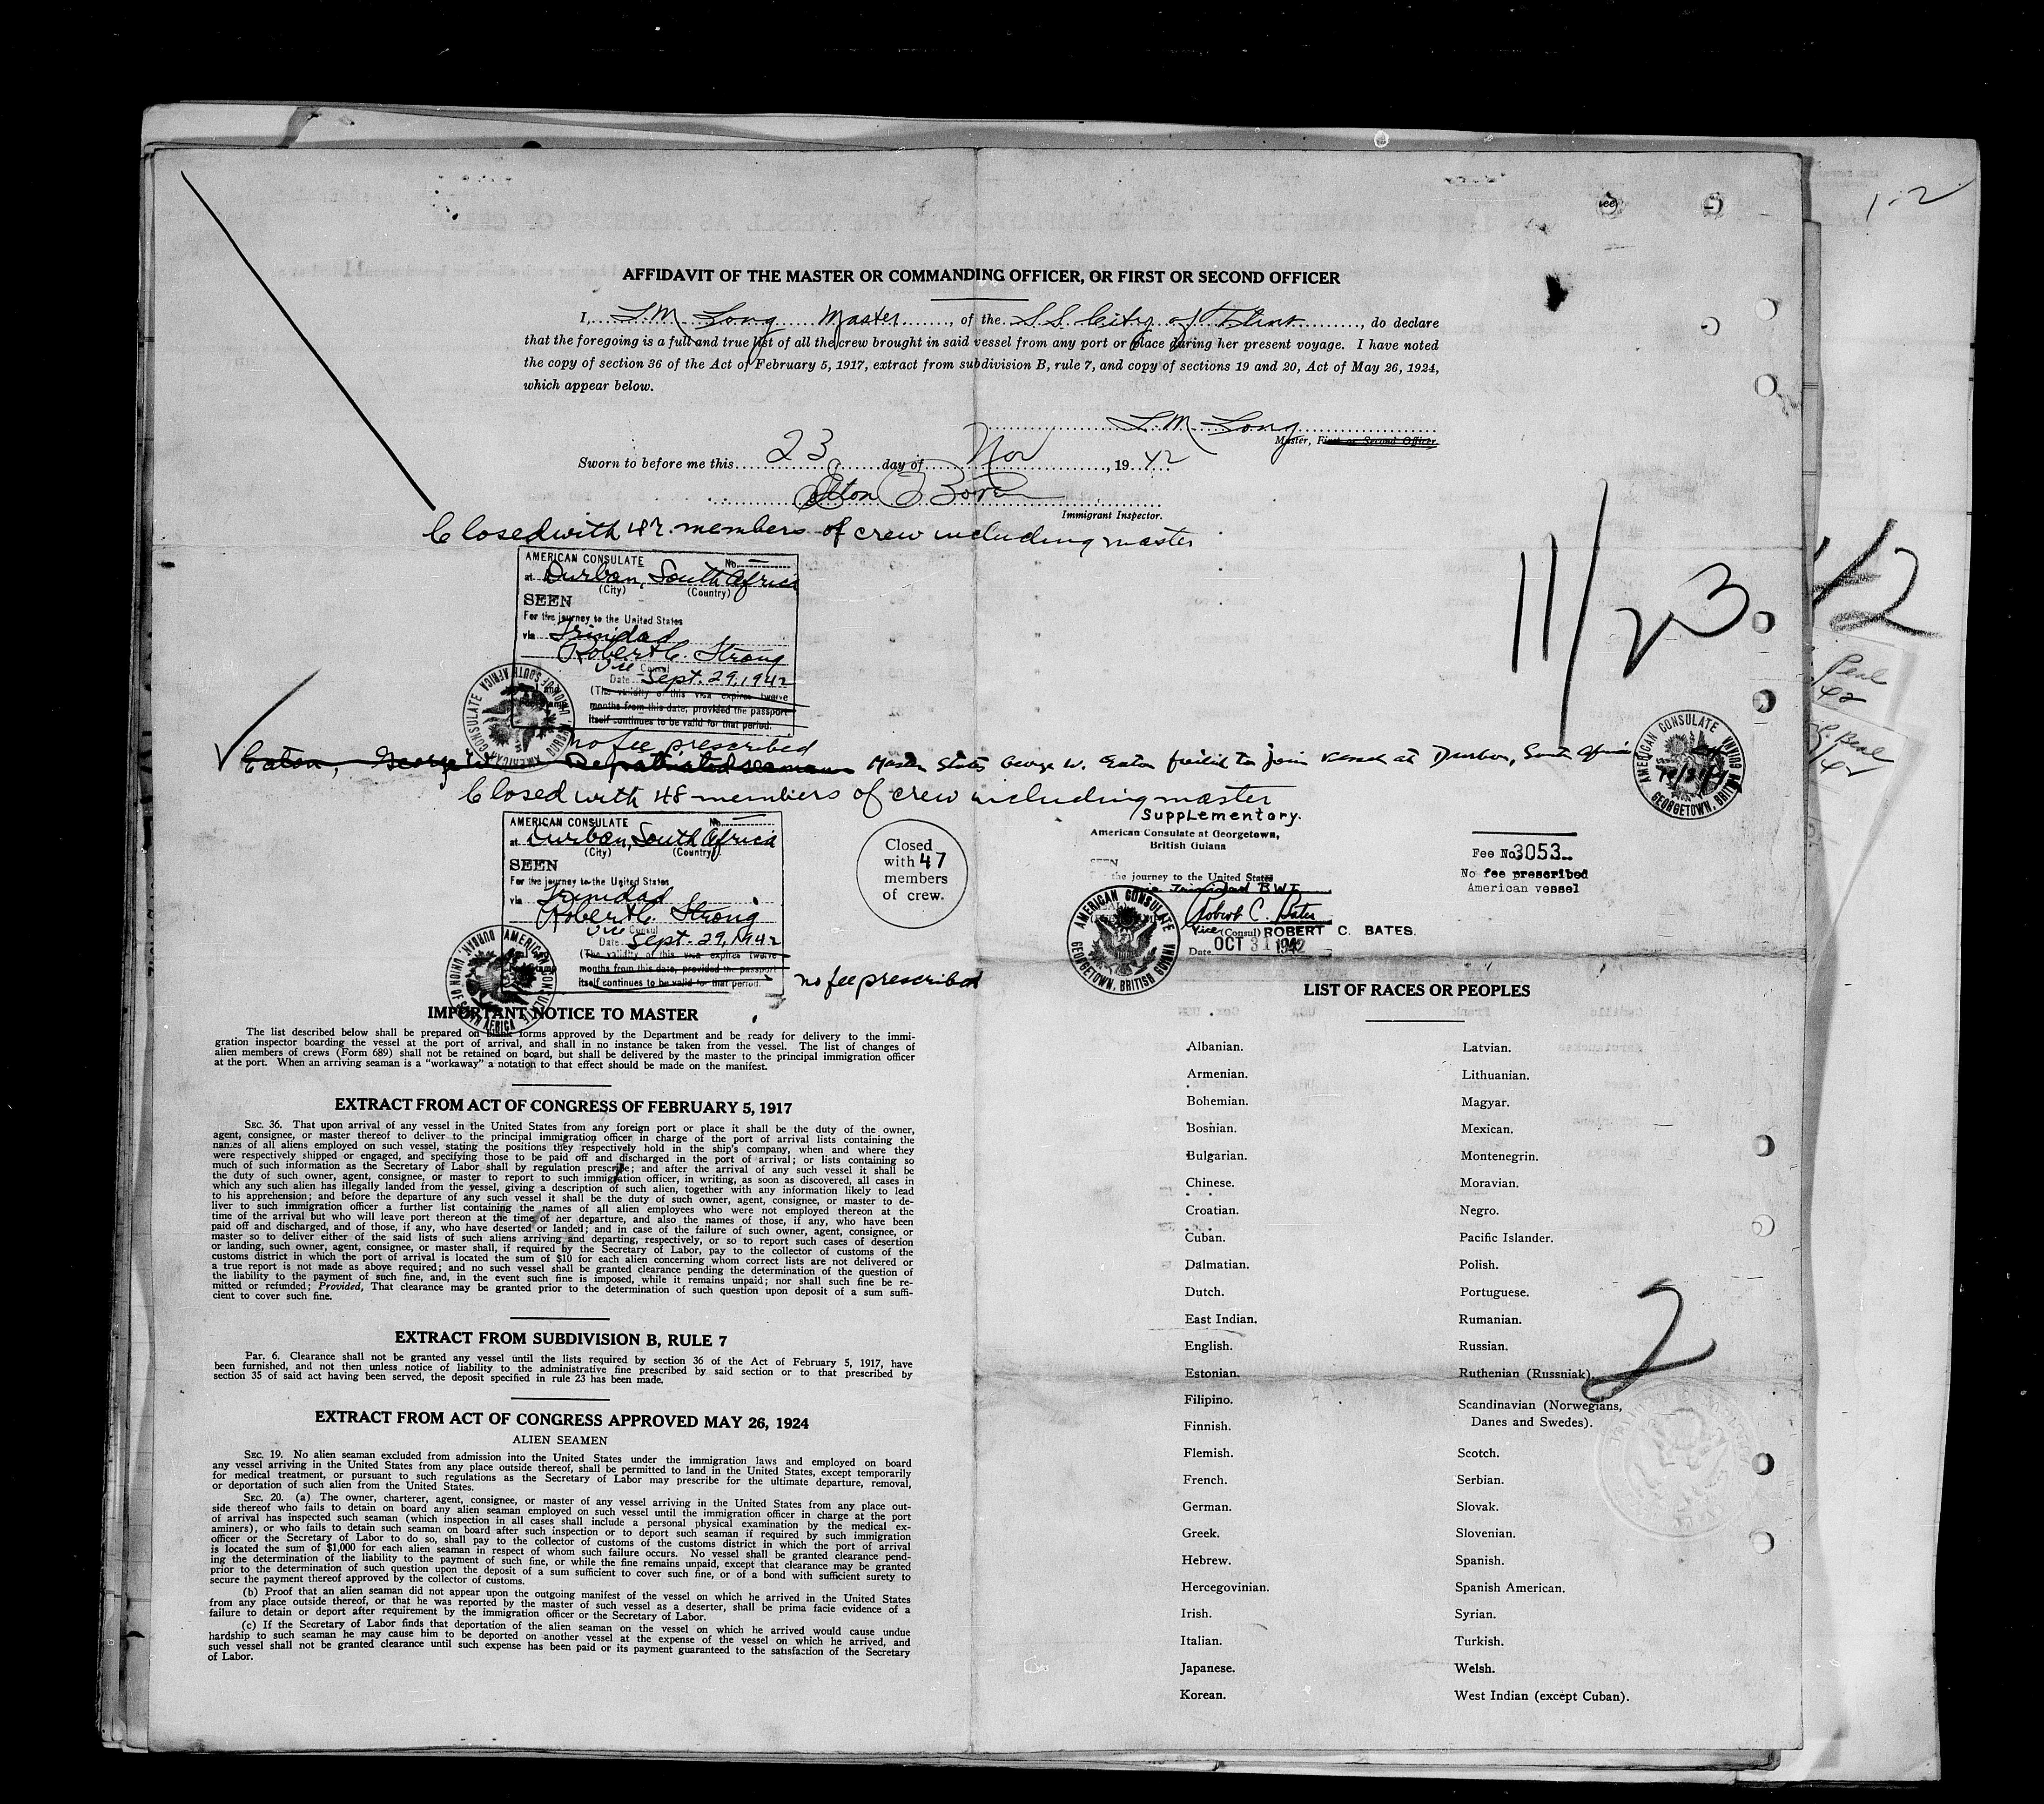 1-2
AFFIDAVIT OF THE MASTER OR COMMANDING OFFICER, OR FIRST OR SECOND OFFICER
I, L.M. Long Master, of the S.S. City of Flint, do declare
that the foregoing is a full and true list of all the crew brought in said vessel from any port or place during her present voyage. I have noted
the copy of section 36 of the Act of February 5, 1917, extract from subdivision B, rule 7, and copy of sections 19 and 20, Act of May 26, 1924,
which appear below.
L.M. Long
Master, First or Second Officer.
Sworn to before me this 23 day of Nov, 1942
Immigrant Inspector.
Closed with 47 members of crew including master
11/23
AMERICAN CONSULATE No.
at Durban, South Africa
(City) (Country)
SEEN
For the journey to the United States
via Trinidad
Robert C. Strong
Vice Consul
Date Sept. 29, 1942
(The validity of this visa expires twelve
months from this date, provided the passport
itself continues to be valid for that period.
no fee prescribed
Eaton, George W. Repatriated seaman Master States George W. Eaton failed to join vessel at Durban, South Africa
AMERICAN CONSULATE GEORGETOWN, BRITISH GUIANA
Closed with 48 members of crew including master
AMERICAN CONSULATE No.
at Durban, South Africa
(City) (Country)
SEEN
For the journey to the United States
via Trinidad
Robert C. Strong
Vice Consul
Date Sept. 29, 1942
(The validity of this visa expires twelve
months from this date, provided the passport
itself continues to be valid for that period.
no fee prescribed
Closed
with 47
members
of crew.
Supplementary.
American Consulate at Georgetown,
British Guiana
SEEN
For the journey to the United States
via Trinidad BWI
Robert C. Bates
Vice (Consul) ROBERT C. BATES.
Date OCT 31 1942
AMERICAN CONSULATE GEORGETOWN, BRITISH GUIANA
Fee No. 3053
No fee prescribed
American vessel
IMPORTANT NOTICE TO MASTER
The list described below shall be prepared on blank forms approved by the Department and be ready for delivery to the immi-
gration inspector boarding the vessel at the port of arrival, and shall in no instance be taken from the vessel. The list of changes of
alien members of crews (Form 689) shall not be retained on board, but shall be delivered by the master to the principal immigration officer
at the port. When an arriving seaman is a "workaway" a notation to that effect should be made on the manifest.
EXTRACT FROM ACT OF CONGRESS OF FEBRUARY 5, 1917
SEC. 36. That upon arrival of any vessel in the United States from any foreign port or place it shall be the duty of the owner,
agent, consignee, or master thereof to deliver to the principal immigration officer in charge of the port of arrival lists containing the
names of all aliens employed on such vessel, stating the positions they respectively hold in the ship's company, when and where they
were respectively shipped or engaged, and specifying those to be paid off and discharged in the port of arrival; or lists containing so
much of such information as the Secretary of Labor shall by regulation prescribe; and after the arrival of any such vessel it shall be
the duty of such owner, agent, consignee, or master to report to such immigration officer, in writing, as soon as discovered, all cases in
which any such alien has illegally landed from the vessel, giving a description of such alien, together with any information likely to lead
to his apprehension; and before the departure of any such vessel it shall be the duty of such owner, agent, consignee, or master to de-
liver to such immigration officer a further list containing the names of all alien employees who were not employed thereon at the
time of the arrival but who will leave port thereon at the time of her departure, and also the names of those, if any, who have been
paid off and discharged, and of those, if any, who have deserted or landed; and in case of the failure of such owner, agent, consignee, or
master so to deliver either of the said lists of such aliens arriving and departing, respectively, or so to report such cases of desertion
or landing, such owner, agent, consignee, or master shall, if required by the Secretary of Labor, pay to the collector of customs of the
customs district in which the port of arrival is located the sum of $10 for each alien concerning whom correct lists are not delivered or
a true report is not made as above required; and no such vessel shall be granted clearance pending the determination of the question of
the liability to the payment of such fine, and, in the event such fine is imposed, while it remains unpaid; nor shall such fine be re-
mitted or refunded; Provided, That clearance may be granted prior to the determination of such question upon deposit of a sum suffi-
cient to cover such fine.
EXTRACT FROM SUBDIVISION B, RULE 7
Par. 6. Clearance shall not be granted any vessel until the lists required by section 36 of the Act of February 5, 1917, have
been furnished, and not then unless notice of liability to the administrative fine prescribed by said section or to that prescribed by
section 35 of said act having been served, the deposit specified in rule 23 has been made.
EXTRACT FROM ACT OF CONGRESS APPROVED MAY 26, 1924
ALIEN SEAMEN
SEC. 19. No alien seaman excluded from admission into the United States under the immigration laws and employed on board
any vessel arriving in the United States from any place outside thereof, shall be permitted to land in the United States, except temporarily
for medical treatment, or pursuant to such regulations as the Secretary of Labor may prescribe for the ultimate departure, removal,
or deportation of such alien from the United States.
SEC. 20. (a) The owner, charterer, agent, consignee, or master of any vessel arriving in the United States from any place out-
side thereof who fails to detain on board any alien seaman employed on such vessel until the immigration officer in charge at the port
of arrival has inspected such seaman (which inspection in all cases shall include a personal physical examination by the medical ex-
aminers), or who fails to detain such seaman on board after such inspection or to deport such seaman if required by such immigration
officer or the Secretary of Labor to do so, shall pay to the collector of customs of the customs district in which the port of arrival
is located the sum of $1,000 for each alien seaman in respect of whom such failure occurs. No vessel shall be granted clearance pend-
ing the determination of the liability to the payment of such fine, or while the fine remains unpaid, except that clearance may be granted
prior to the determination of such question upon the deposit of a sum sufficient to cover such fine, or of a bond with sufficient surety to
secure the payment thereof approved by the collector of customs.
(b) Proof that an alien seaman did not appear upon the outgoing manifest of the vessel on which he arrived in the United States
from any place outside thereof, or that he was reported by the master of such vessel as a deserter, shall be prima facie evidence of a
failure to detain or deport after requirement by the immigration officer or the Secretary of Labor.
(c) If the Secretary of Labor finds that deportation of the alien seaman on the vessel on which he arrived would cause undue
hardship to such seaman he may cause him to be deported on another vessel at the expense of the vessel on which he arrived, and
such vessel shall not be granted clearance until such expense has been paid or its payment guaranteed to the satisfaction of the Secretary
of Labor.
LIST OF RACES OR PEOPLES
Albanian.
Armenian.
Bohemian.
Bosnian.
Bulgarian.
Chinese.
Croatian.
Cuban.
Dalmatian.
Dutch.
East Indian.
English.
Estonian.
Filipino.
Finnish.
Flemish.
French.
German.
Greek.
Hebrew.
Hercegovinian.
Irish.
Italian.
Japanese.
Korean.
Latvian.
Lithuanian.
Magyar.
Mexican.
Montenegrin.
Moravian.
Negro.
Pacific Islander.
Polish.
Portuguese.
Rumanian.
Russian.
Ruthenian (Russniak).
Scandinavian (Norwegians,
Danes and Swedes).
Scotch.
Serbian.
Slovak.
Slovenian.
Spanish.
Spanish American.
Syrian.
Turkish.
Welsh.
West Indian (except Cuban).
2